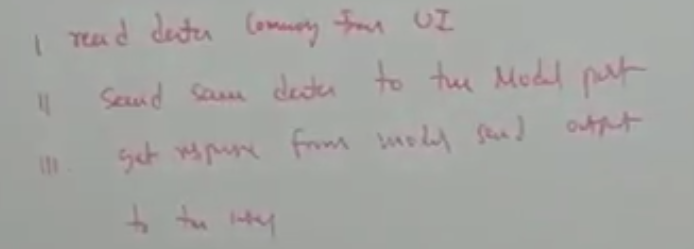 I read data coming from UI
II Send same data to the Model part
III. get response from model send output
to the